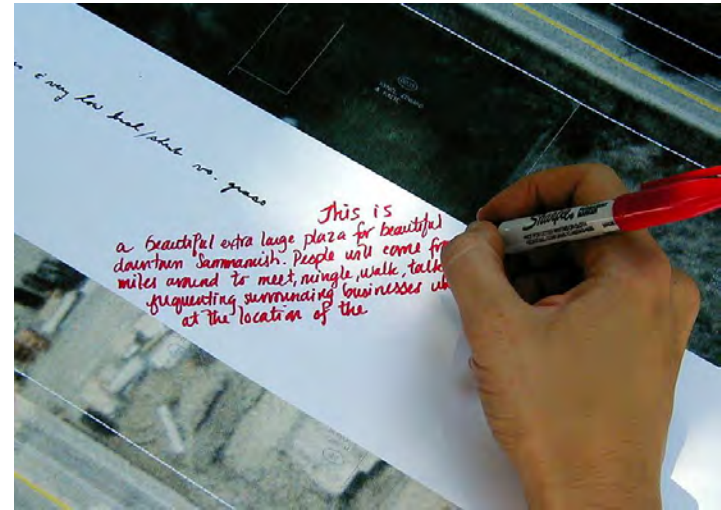 low brush/shrub vs. grass
This is
a beautiful extra large plaza for beautiful
downtown Sammamish. People will come
miles around to meet, mingle, walk, talk
frequenting surrounding businesses
at the location of the
Sharpie